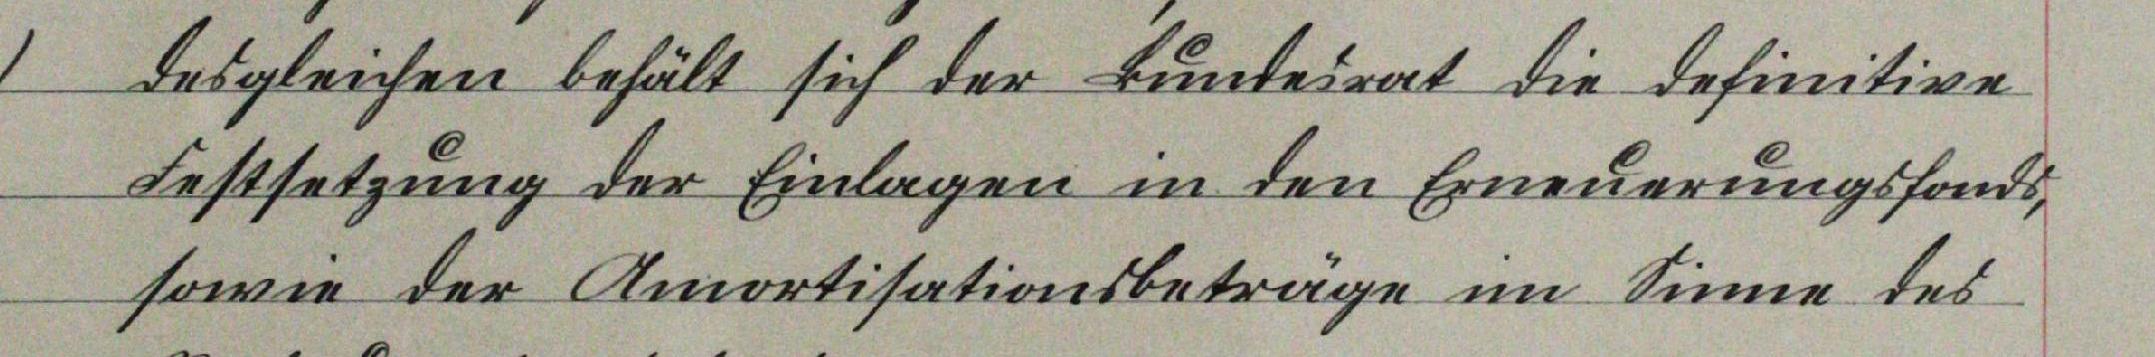 desgleichen behält sich der Bundesrat die definitive
Festsetzung der Einlagen in den Erneuerungsfonds,
sowie der Amortisationsbeträge im Sinne des